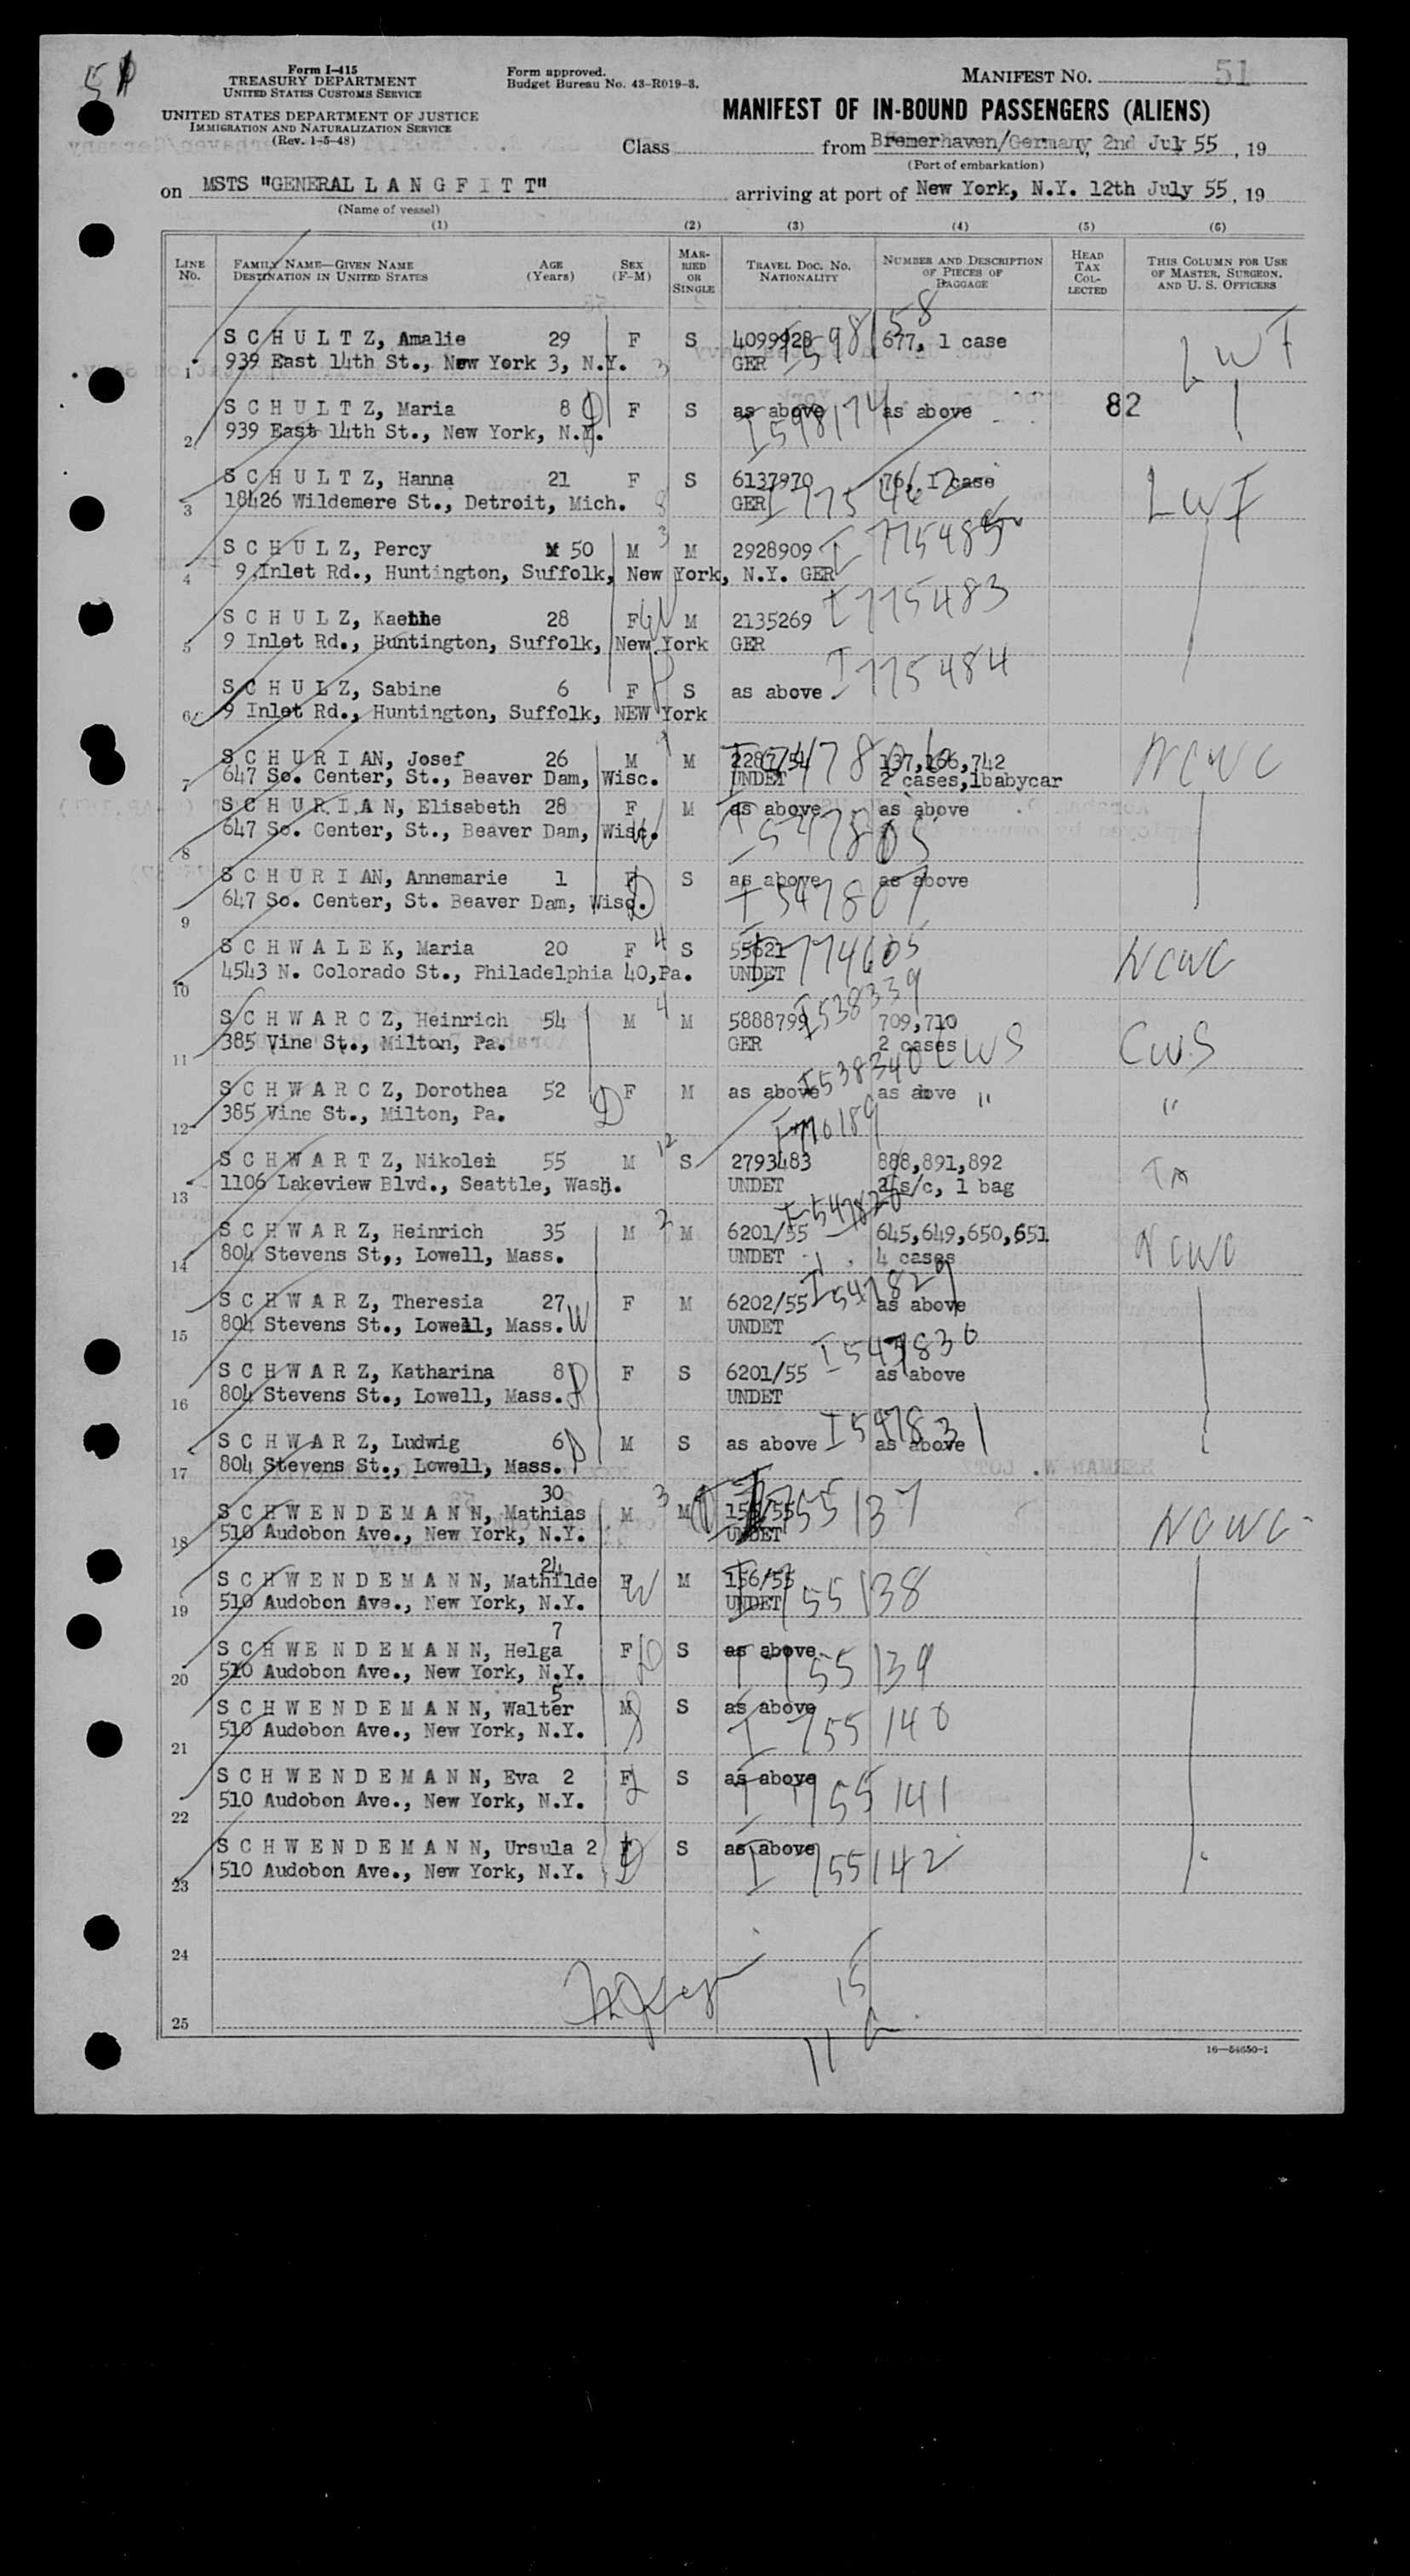 51
Form I-415
TREASURY DEPARTMENT
UNITED STATES CUSTOMS SERVICE
UNITED STATES DEPARTMENT OF JUSTICE
IMMIGRATION AND NATURALIZATION SERVICE
(Rev. 1-5-48)
Form approved.
Budget Bureau No. 43-R019-3.
MANIFEST NO. 51
MANIFEST OF IN-BOUND PASSENGERS (ALIENS)
Class from Bremerhaven/Germany, 2nd July 55, 19
(Port of embarkation)
on MSTS "GENERAL L A N G F I T T" arriving at port of New York, N.Y. 12th July 55, 19
(Name of vessel)
(1) (2) (3) (4) (5) (6)
LINE NO. FAMILY NAME—GIVEN NAME DESTINATION IN UNITED STATES AGE (Years) SEX (F-M) MARRIED OR SINGLE TRAVEL DOC. NO. NATIONALITY NUMBER AND DESCRIPTION OF PIECES OF BAGGAGE HEAD TAX COLLECTED THIS COLUMN FOR USE OF MASTER, SURGEON, AND U. S. OFFICERS
S C H U L T Z, Amalie 29 F S 4099928 677, 1 case LWF
1 939 East 14th St., New York 3, N.Y. 3 GER
S C H U L T Z, Maria 8 F S as above as above 82
2 939 East 14th St., New York, N.Y. I598174
S C H U L T Z, Hanna 21 F S 6137970 76, 1 case LWF
3 18426 Wildemere St., Detroit, Mich. GER
S C H U L Z, Percy 50 M 3 M 2928909 I775485
4 9 Inlet Rd., Huntington, Suffolk, New York, N.Y. GER
S C H U L Z, Kaethe 28 F W M 2135269 I775483
5 9 Inlet Rd., Huntington, Suffolk, New York GER
S C H U L Z, Sabine 6 F S as above I775484
6 9 Inlet Rd., Huntington, Suffolk, NEW York
S C H U R I AN, Josef 26 M M 2287/54 137,166,742 NCWC
7 647 So. Center, St., Beaver Dam, Wisc. UNDET 2 cases,1babycar
S C H U R I A N, Elisabeth 28 F M as above as above
8 647 So. Center, St., Beaver Dam, Wisc. I547805
S C H U R I AN, Annemarie 1 F S as above as above
9 647 So. Center, St. Beaver Dam, Wisc. I547807
S C H W A L E K, Maria 20 F 4 S 55621 I774605 NCWC
10 4543 N. Colorado St., Philadelphia 40,Pa. UNDET
S C H W A R C Z, Heinrich 54 M 4 M 5888799 I538339 709,710
11 385 Vine St., Milton, Pa. GER 2 cases CWS CWS
S C H W A R C Z, Dorothea 52 F M as above I538340 as above " "
12 385 Vine St., Milton, Pa. D
S C H W A R T Z, Nikolei 55 M 12 S 2793483 888,891,892
13 1106 Lakeview Blvd., Seattle, Wash. UNDET 2 s/c, 1 bag
S C H W A R Z, Heinrich 35 M 2 M 6201/55 645,649,650,651 NCWC
14 804 Stevens St,, Lowell, Mass. UNDET 4 cases
S C H W A R Z, Theresia 27 F M 6202/55 I547829 as above
15 804 Stevens St., Lowell, Mass. W UNDET
S C H W A R Z, Katharina 8 F S 6201/55 I547830 as above
16 804 Stevens St., Lowell, Mass. UNDET
S C H W A R Z, Ludwig 6 M S as above I547831 as above
17 804 Stevens St., Lowell, Mass.
S C H W E N D E M A N N, Mathias 30 M 3 M I755137 NCWC
18 510 Audobon Ave., New York, N.Y. UNDET
S C H W E N D E M A N N, Mathilde 24 F W M 156/55 I755138
19 510 Audobon Ave., New York, N.Y. UNDET
S C H W E N D E M A N N, Helga 7 F D S as above I755139
20 510 Audobon Ave., New York, N.Y.
S C H W E N D E M A N N, Walter 5 M S as above I755140
21 510 Audobon Ave., New York, N.Y.
S C H W E N D E M A N N, Eva 2 F S as above I755141
22 510 Audobon Ave., New York, N.Y.
S C H W E N D E M A N N, Ursula 2 F D S as above I755142
23 510 Audobon Ave., New York, N.Y.
24
25
16—54650-1